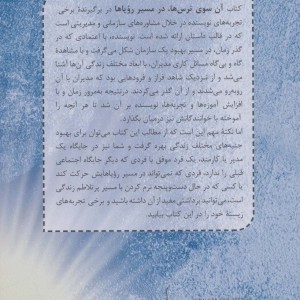 کتاب آن سوی ترس‌ها، در مسیر رؤیاها در برگیرندهٔ برخی
تجربه‌های نویسنده در خلال مشاوره‌های سازمانی و مدیریتی است
که در قالب داستان ارائه شده است. نویسنده، با اعتمادی که در
گذر زمان، در مسیر بهبود یک سازمان شکل می‌گرفت و با مشاهدهٔ
گاه و بی‌گاه مسائل کاری مدیران، با ابعاد مختلف زندگی آن‌ها آشنا
می‌شد و از نزدیک شاهد فراز و فرودهایی بود که مدیران با آن
روبه‌رو می‌شدند و از آن‌ها گذر می‌کردند. درنتیجه به‌مرور زمان و با
افزایش آموزه‌ها و تجربه‌ها، نویسنده بر آن شد تا هر آنچه را
آموخته با خوانندگانش نیز درمیان بگذارد.
اما نکتهٔ مهم این است که از مطالب این کتاب می‌توان برای بهبود
جنبه‌های مختلف زندگی بهره گرفت و شما نیز در جایگاه یک
مدیر یا کارمند، یک فرد موفق یا فردی که دیگر جایگاه اجتماعی
قبلی را ندارد، فردی که نمی‌تواند در مسیر رؤیاهایش حرکت کند
یا کسی که در حال دست‌وپنجه نرم کردن با مسیر پرتلاطم زندگی
است، می‌توانید برداشتی مفید از آن داشته باشید و برخی تجربه‌های
زیستهٔ خود را در این کتاب بیابید.